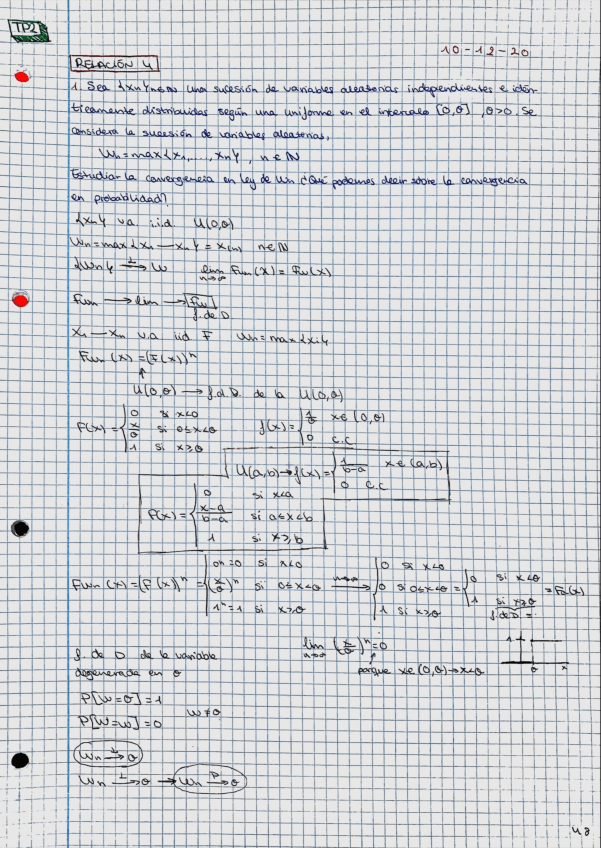 TP2
10-12-20
RELACIÓN 4
1. Sea {Xn}n∈N una sucesión de variables aleatorias independientes e idén-
ticamente distribuidas según una uniforme en el intervalo [0,θ], θ>0. Se
considera la sucesión de variables aleatorias,
Wn = max{X1,..., Xn}, n∈N
Estudiar la convergencia en ley de Wn ¿Qué podemos decir sobre la convergencia
en probabilidad?
{Xn} v.a. i.i.d. U(0,θ)
Wn = max{X1 — Xn} = X(n) n∈N
{Wn} →L W lim n→∞ FWn(x) = FW(x)
FWn → lim → FW
f. de D
X1 — Xn v.a iid F Wn = max{Xi}
FWn(x) = (F(x))^n
↑
U(0,θ) → f.d.D. de la U(0,θ)
F(x) = { 0 si x<0
x/θ si 0≤x<θ
1 si x≥θ
f(x) = { 1/θ x∈(0,θ)
0 c.c
U(a,b) → f(x) = { 1/(b-a) x∈(a,b)
0 c.c
F(x) = { 0 si x<a
(x-a)/(b-a) si a≤x<b
1 si x≥b
FWn(x) = (F(x))^n = { 0^n = 0 si x<0
(x/θ)^n si 0≤x<θ
1^n = 1 si x≥θ
n→∞ → { 0 si x<0
0 si 0≤x<θ
1 si x≥θ
= { 0 si x<θ
1 si x≥θ = Fθ(x)
f. de D
lim n→∞ (x/θ)^n = 0
↑
porque x∈(0,θ) → x<θ
1
θ x
f. de D de la variable
degenerada en θ
P[W=θ] = 1
P[W=w] = 0 w≠θ
Wn →L θ
Wn →L θ → Wn →P θ
48